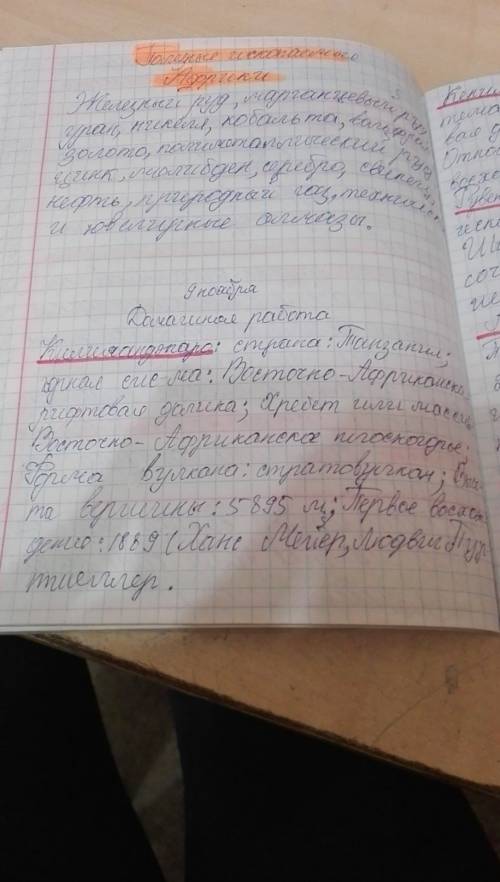 Полезные ископаемого
Африки
Железный руд, марганцевый руд
уран, никеля, кобальта,
золото, руд
цинк, молибден, серебро, свинец,
нефть, природный газ, техничес
и ювелирные алмазы.
9 ноября
Домашная работа
Килиманджаро: страна: Танзания;
сис-ма: Восточно-Африканска
рифтовая долина; Хребет или массив
Восточно-Африканское плоскогорье;
Форма вулкана: стратовулкан;
та вершины: 5895 м; Первое восхож
дение: 1889 (Ханс Мейер, Людвиг Пур
тшеллер.
Кени
тема
вая
Отно
восхо
иско
соч